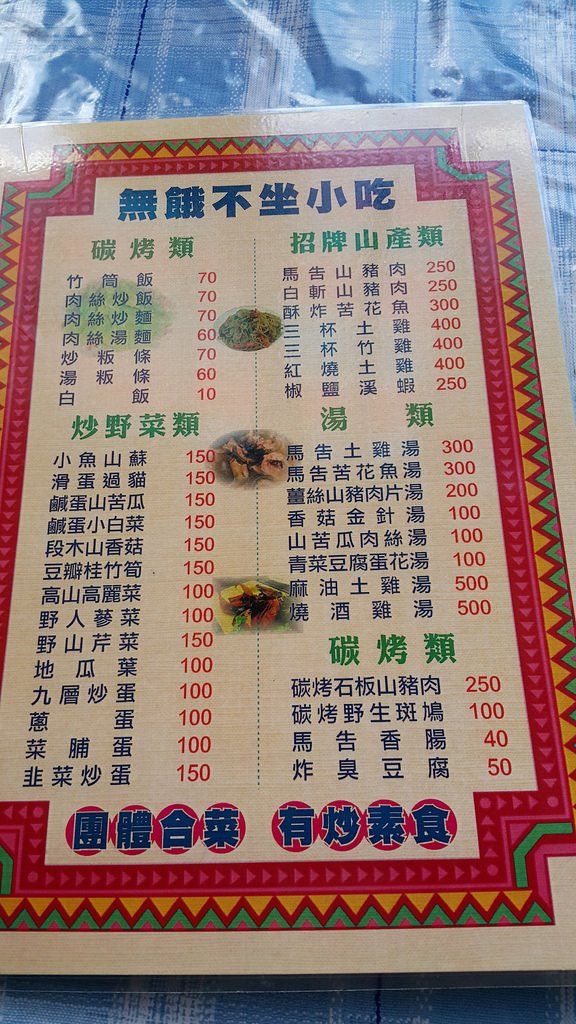 無餓不坐小吃
碳烤類
竹筒飯 70
肉絲炒飯 70
肉絲炒麵 70
肉絲湯麵 60
炒粄條 70
湯粄條 60
白飯 10
炒野菜類
小魚山蘇 150
滑蛋過貓 150
鹹蛋山苦瓜 150
鹹蛋小白菜 150
段木山香菇 150
豆瓣桂竹筍 150
高山高麗菜 100
野人蔘菜 100
野山芹菜 150
地瓜葉 100
九層炒蛋 100
蔥蛋 100
菜脯蛋 100
韭菜炒蛋 150
招牌山產類
馬告山豬肉 250
白斬山豬肉 250
酥炸苦花魚 300
三杯土雞 400
三杯竹雞 400
紅燒土雞 400
椒鹽溪蝦 250
湯類
馬告土雞湯 300
馬告苦花魚湯 300
薑絲山豬肉片湯 200
香菇金針湯 100
山苦瓜肉絲湯 100
青菜豆腐蛋花湯 100
麻油土雞湯 500
燒酒雞湯 500
碳烤類
碳烤石板山豬肉 250
碳烤野生斑鳩 100
馬告香腸 40
炸臭豆腐 50
團體合菜 有炒素食